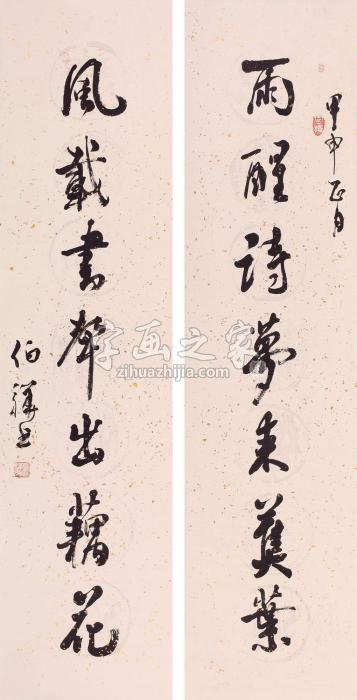 甲申正月
雨醒詩夢来蕉葉
風載書聲出藕花
伯祥书
字画之家
zihuazhijia.com